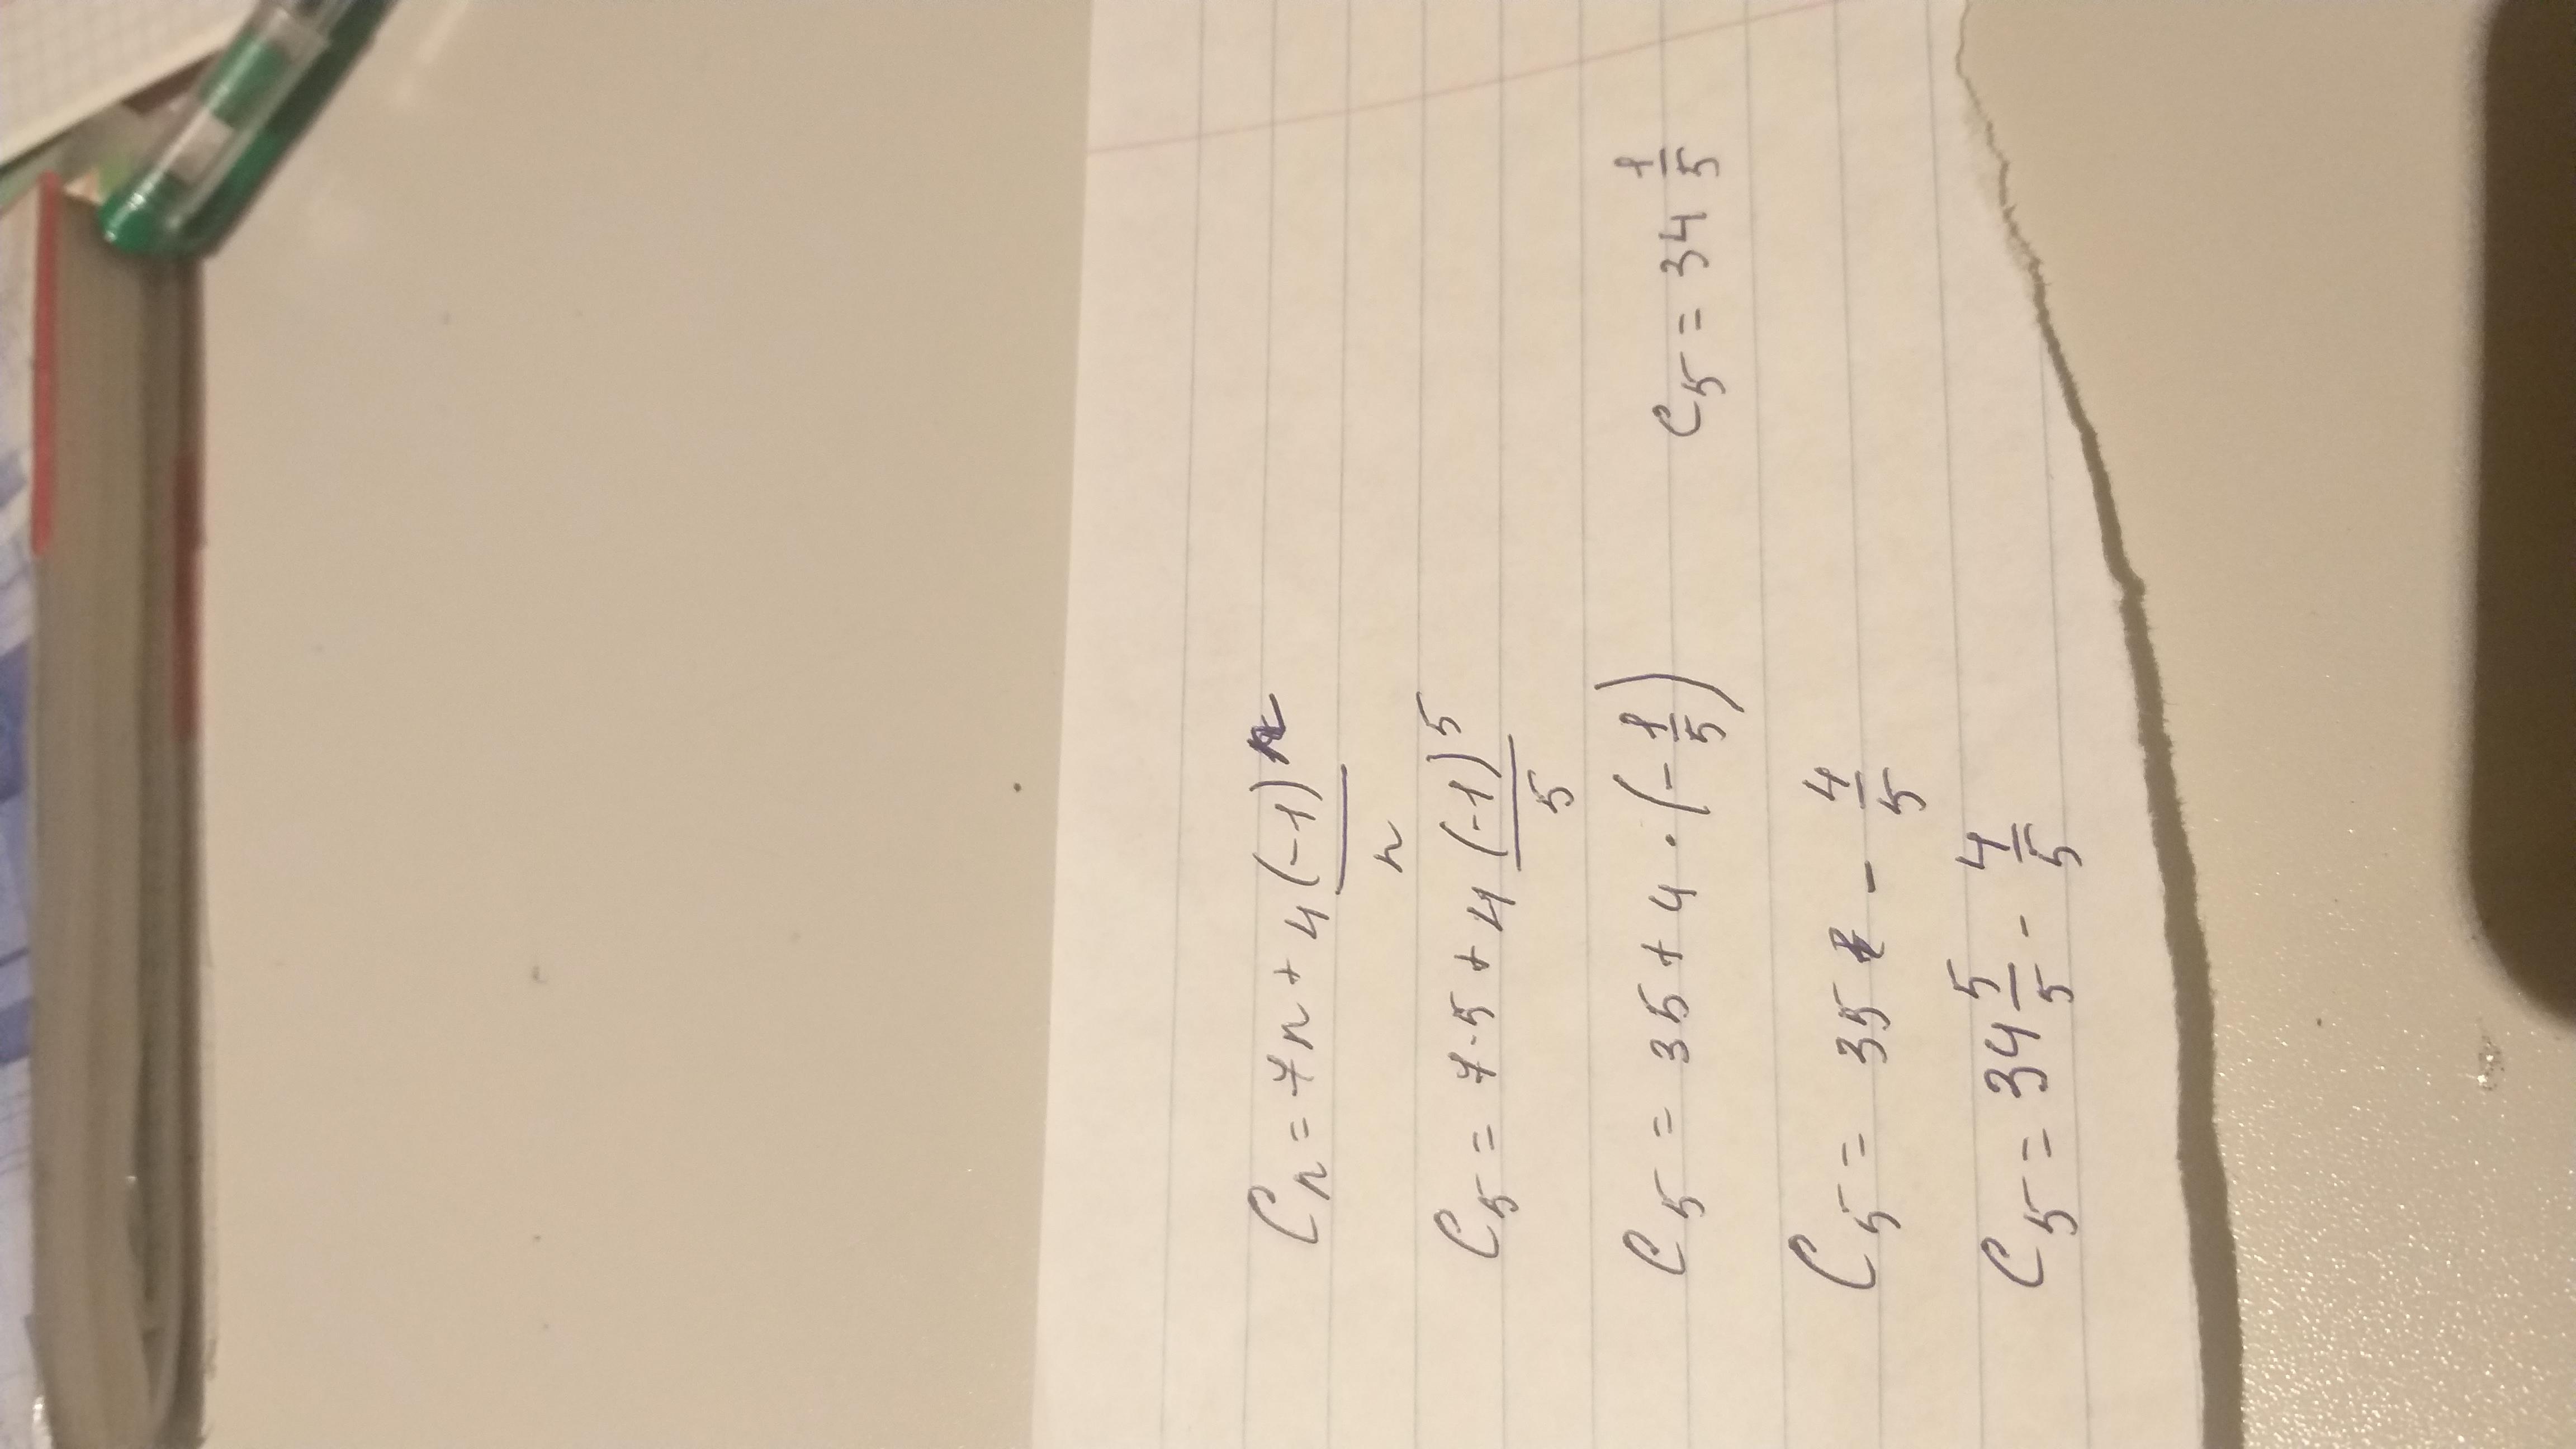 Cn = 7n + 4 (-1)^n / n
C5 = 7·5 + 4 (-1)^5 / 5
C5 = 35 + 4 · (-1/5)
C5 = 35 - 4/5
C5 = 34 5/5 - 4/5
C5 = 34 1/5